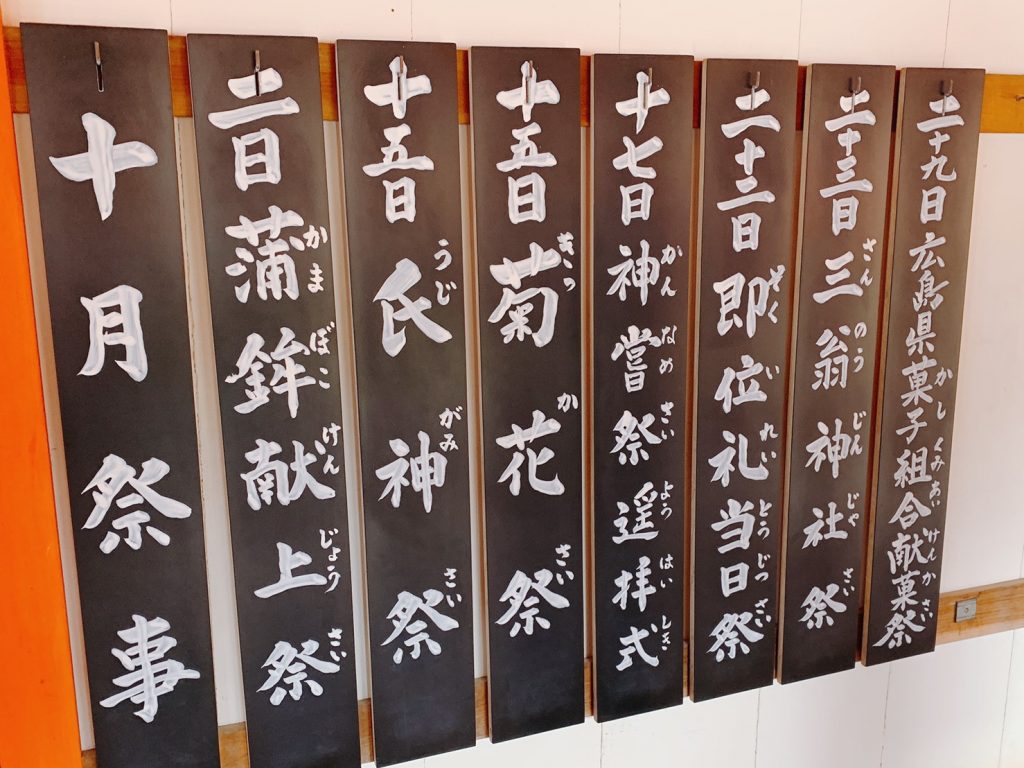 十月祭事
二日蒲鉾献上祭
かまぼこけんじょうさい
十五日氏神祭
うじがみさい
十五日菊花祭
きっかさい
十七日神嘗祭遥拝式
かんなめさいようはいしき
二十二日即位礼当日祭
そくいれいとうじつさい
二十三日三翁神社祭
さんのうじんじゃさい
二十九日広島県菓子組合献菓祭
かしくみあいけんかさい